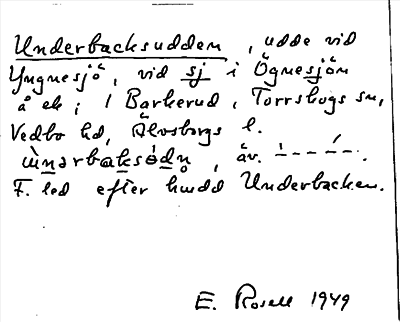 Underbacksudden, udde vid
Yngnesjö, vid sj i Ögnesjön
å ek; / Barkerud, Torrskogs sn,
Vedbo hd, Älvsborgs l.
ùnərbaksódn̥, äv. ̀– – – ́–.
F. led efter hmdd Underbacken.
E. Rosell 1949